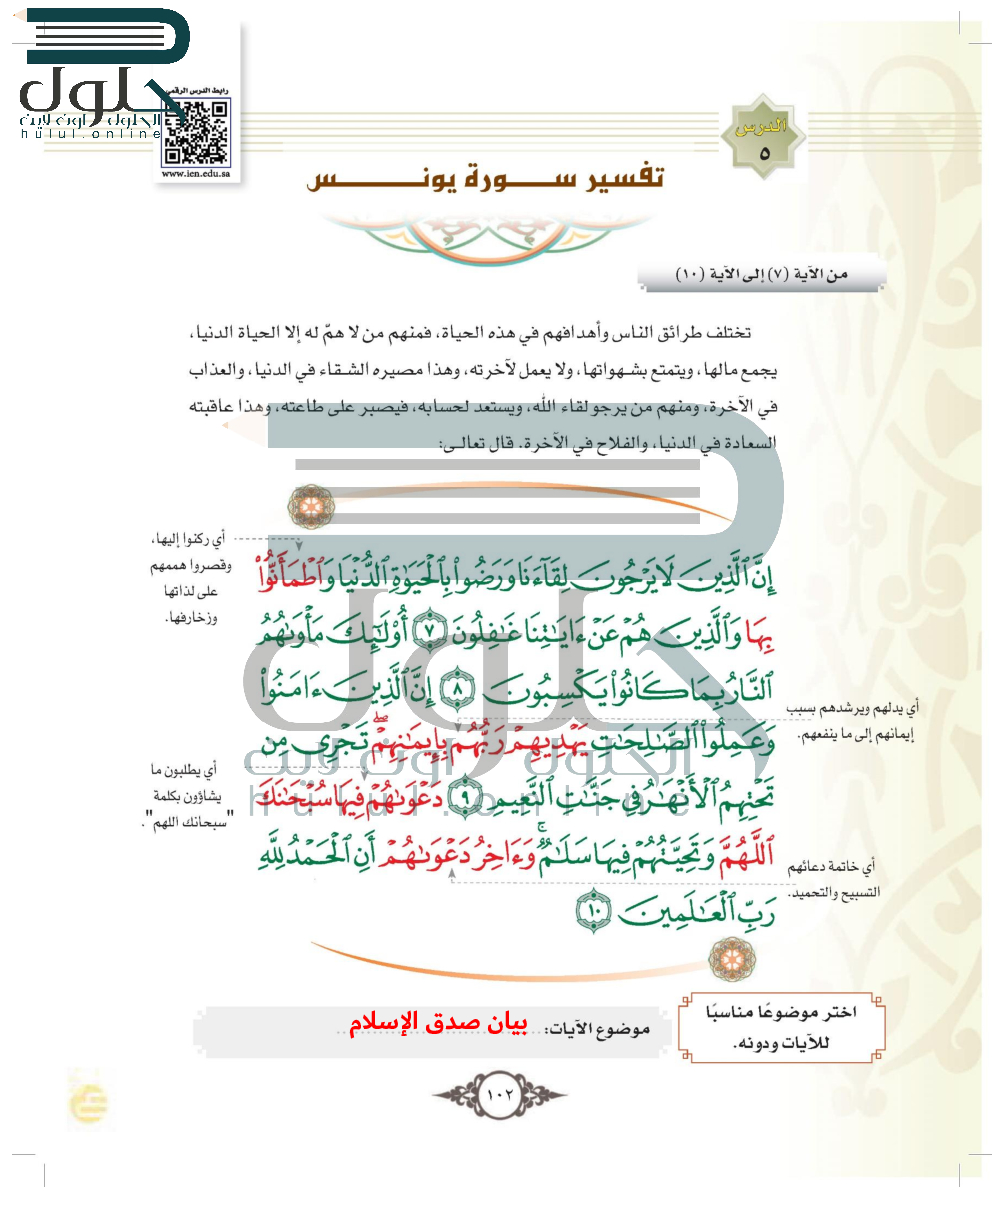 حلول
الحلول اون لاين
hulul.online
رابط الدرس الرقمي
www.ien.edu.sa
الدرس
٥
تفسير سورة يونس
من الآية (٧) إلى الآية (١٠)
تختلف طرائق الناس وأهدافهم في هذه الحياة، فمنهم من لا همّ له إلا الحياة الدنيا،
يجمع مالها، ويتمتع بشهواتها، ولا يعمل لآخرته، وهذا مصيره الشقاء في الدنيا، والعذاب
في الآخرة، ومنهم من يرجو لقاء الله، ويستعد لحسابه، فيصبر على طاعته، وهذا عاقبته
السعادة في الدنيا، والفلاح في الآخرة. قال تعالى:
أي ركنوا إليها،
وقصروا هممهم
على لذاتها
وزخارفها.
إِنَّ ٱلَّذِينَ لَا يَرْجُونَ لِقَآءَنَا وَرَضُوا۟ بِٱلْحَيَوٰةِ ٱلدُّنْيَا وَٱطْمَأَنُّوا۟
بِهَا وَٱلَّذِينَ هُمْ عَنْ ءَايَٰتِنَا غَٰفِلُونَ ٧ أُو۟لَٰٓئِكَ مَأْوَىٰهُمُ
ٱلنَّارُ بِمَا كَانُوا۟ يَكْسِبُونَ ٨ إِنَّ ٱلَّذِينَ ءَامَنُوا۟
وَعَمِلُوا۟ ٱلصَّٰلِحَٰتِ يَهْدِيهِمْ رَبُّهُم بِإِيمَٰنِهِمْ ۖ تَجْرِى مِن
تَحْتِهِمُ ٱلْأَنْهَٰرُ فِى جَنَّٰتِ ٱلنَّعِيمِ ٩ دَعْوَىٰهُمْ فِيهَا سُبْحَٰنَكَ
ٱللَّهُمَّ وَتَحِيَّتُهُمْ فِيهَا سَلَٰمٌ ۚ وَءَاخِرُ دَعْوَىٰهُمْ أَنِ ٱلْحَمْدُ لِلَّهِ
رَبِّ ٱلْعَٰلَمِينَ ١٠
أي يدلهم ويرشدهم بسبب
إيمانهم إلى ما ينفعهم.
أي يطلبون ما
يشاؤون بكلمة
"سبحانك اللهم".
أي خاتمة دعائهم
التسبيح والتحميد.
حلول
الحلول اون لاين
hulul.online
اختر موضوعًا مناسبًا
للآيات ودونه.
موضوع الآيات: بيان صدق الإسلام
١٠٢